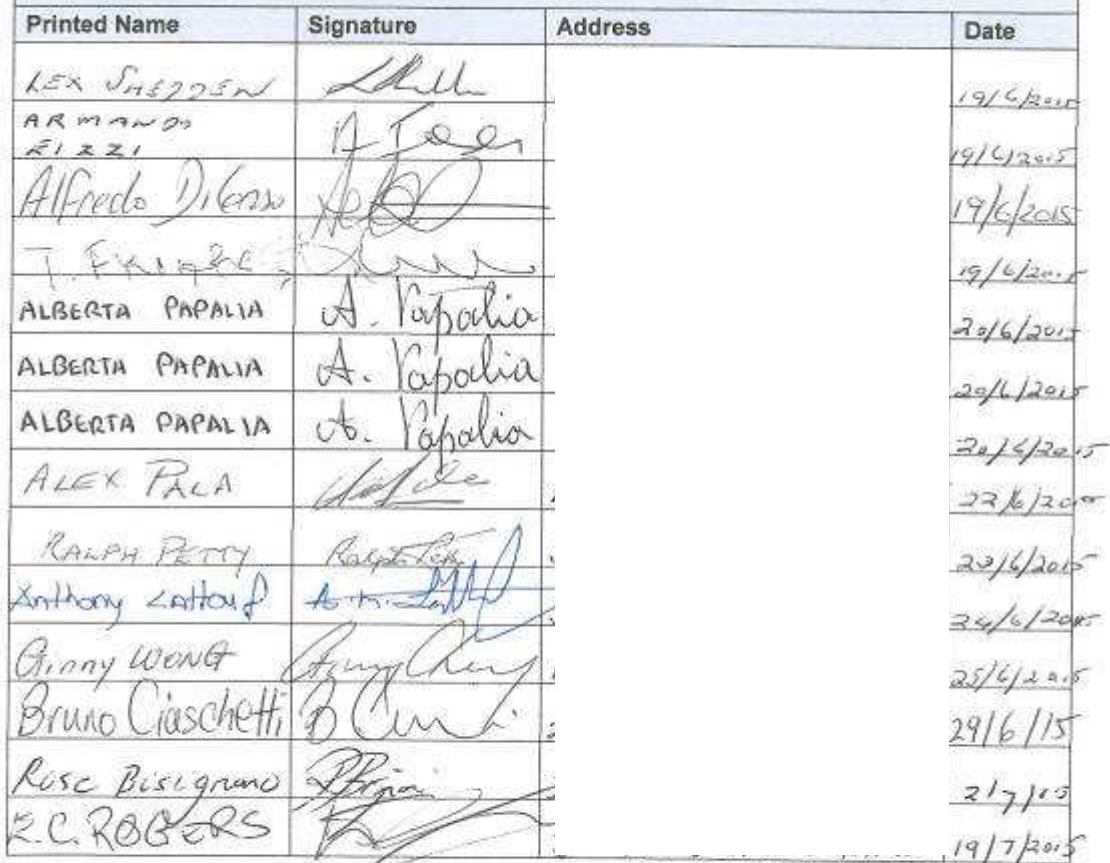 Printed Name Signature Address Date
LEX SHEDDEN 19/6/2015
ARMANDO
19/6/2015
Alfredo 19/6/2015
T. 19/6/2015
ALBERTA PAPALIA A. Papalia 20/6/2015
ALBERTA PAPALIA A. Papalia 20/6/2015
ALBERTA PAPALIA A. Papalia 20/6/2015
ALEX PALA 22/6/2015
RALPH PETTY Ralph Petty /6/2015
Anthony Lattouf 24/6/2015
Ginny WONG 25/6/2015
Bruno Ciaschetti 29/6/15
Rose Bisignano 2/7/15
C. ROGERS 19/7/2015